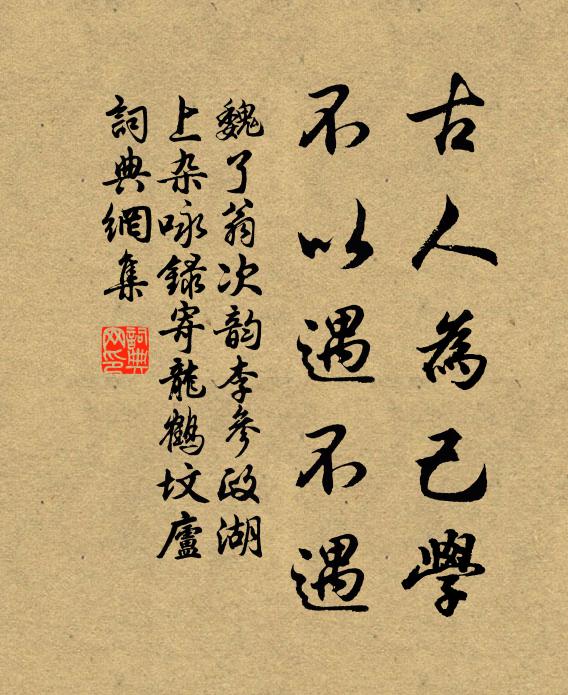 古人為己學
不以遇不遇
魏了翁次韵李參政湖
上杂咏録寄龍鶴坟廬
詞典網集
詞典网印